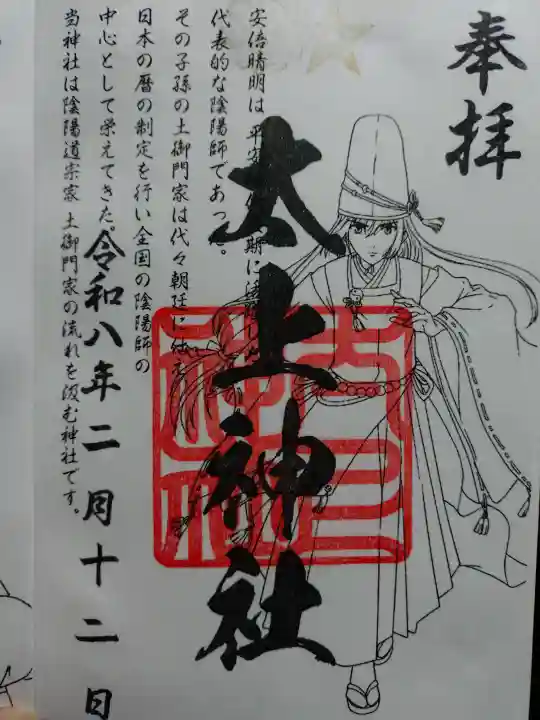 奉拝
太上神社
安倍晴明は平安
期に活
代表的な陰陽師であった。
その子孫の土御門家は代々朝廷に仕え
日本の暦の制定を行い全国の陰陽師の
中心として栄えてきた。
当神社は陰陽道宗家 土御門家の流れを汲む神社です。
令和八年二月十二日